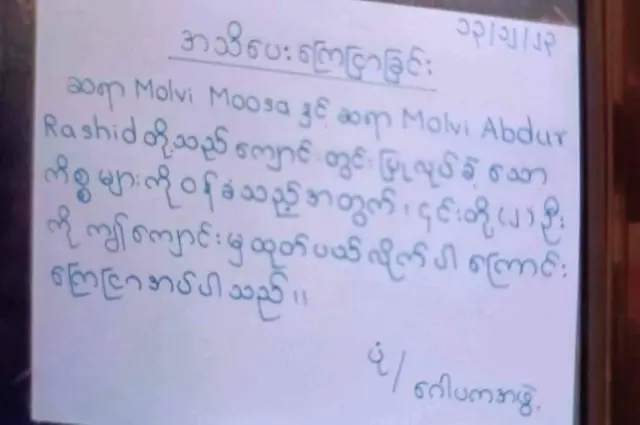 ၁၃/၁၂/၁၃
အသိပေးကြေငြာခြင်း
ဆရာ Molvi Moosa နှင့် ဆရာ Molvi Abdur
Rashid တို့သည် ကျောင်းတွင်း ပြုလုပ်ခဲ့သော
ကိစ္စများကို ဝန်ခံသည့်အတွက်၊ ၎င်းတို့ (၂) ဦး
ကို ကျွန်ကျောင်းမှ ထုတ်ပယ်လိုက်ပါကြောင်း
ကြေငြာအပ်ပါသည်။
ပုံ/
ဂေါပကအဖွဲ့